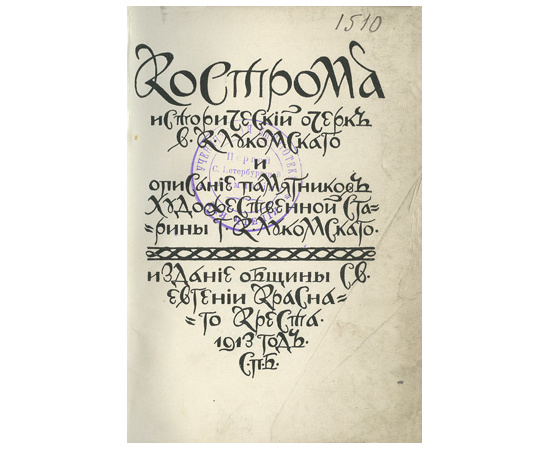 1510
Кострома
историческій очеркъ
В. К. Лукомскаго
и
описаніе памятниковъ
художественной ста-
рины Г. К. Лукомскаго.
изданіе общины св.
евгеніи красна-
го креста.
1913 годъ.
С.П.Б.